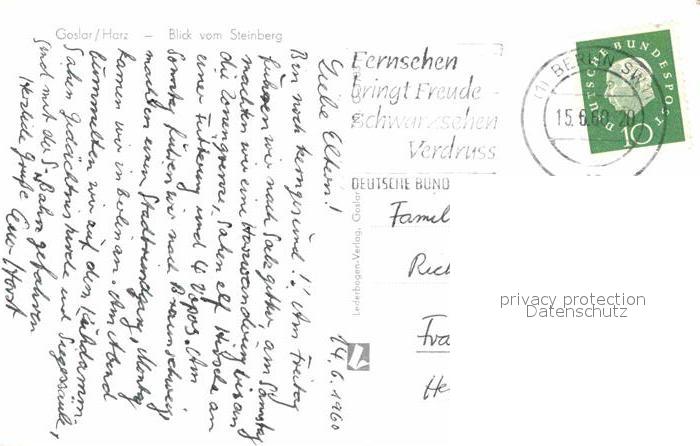 Goslar/Harz – Blick vom Steinberg
14.6.1960
Liebe Eltern!
Bin noch kerngesund!! Am Freitag
fuhren wir nach Salzgitter, am Samstag
machten wir eine Harzwanderung bis an
die Zonengrenze, sahen elf Hirsche an
einer Fütterung und 4 Vopos. Am
Sonntag fuhren wir nach Braunschweig,
machten einen Stadtrundgang, Montag
kamen wir in Berlin an. Am Abend
bummelten wir auf dem Kuhdamm,
sahen Gedächtniskirche und Siegessäule,
sind mit der S-Bahn gefahren
Herzliche Grüße Euer Horst
Lederbogen-Verlag, Goslar
Fernsehen
bringt Freude -
Schwarzsehen
Verdruss
DEUTSCHE BUND
(1) BERLIN SW 11
15.6.60.20
DEUTSCHE BUNDESPOST
10
Famil
Rich
Fra
He
privacy protection
Datenschutz